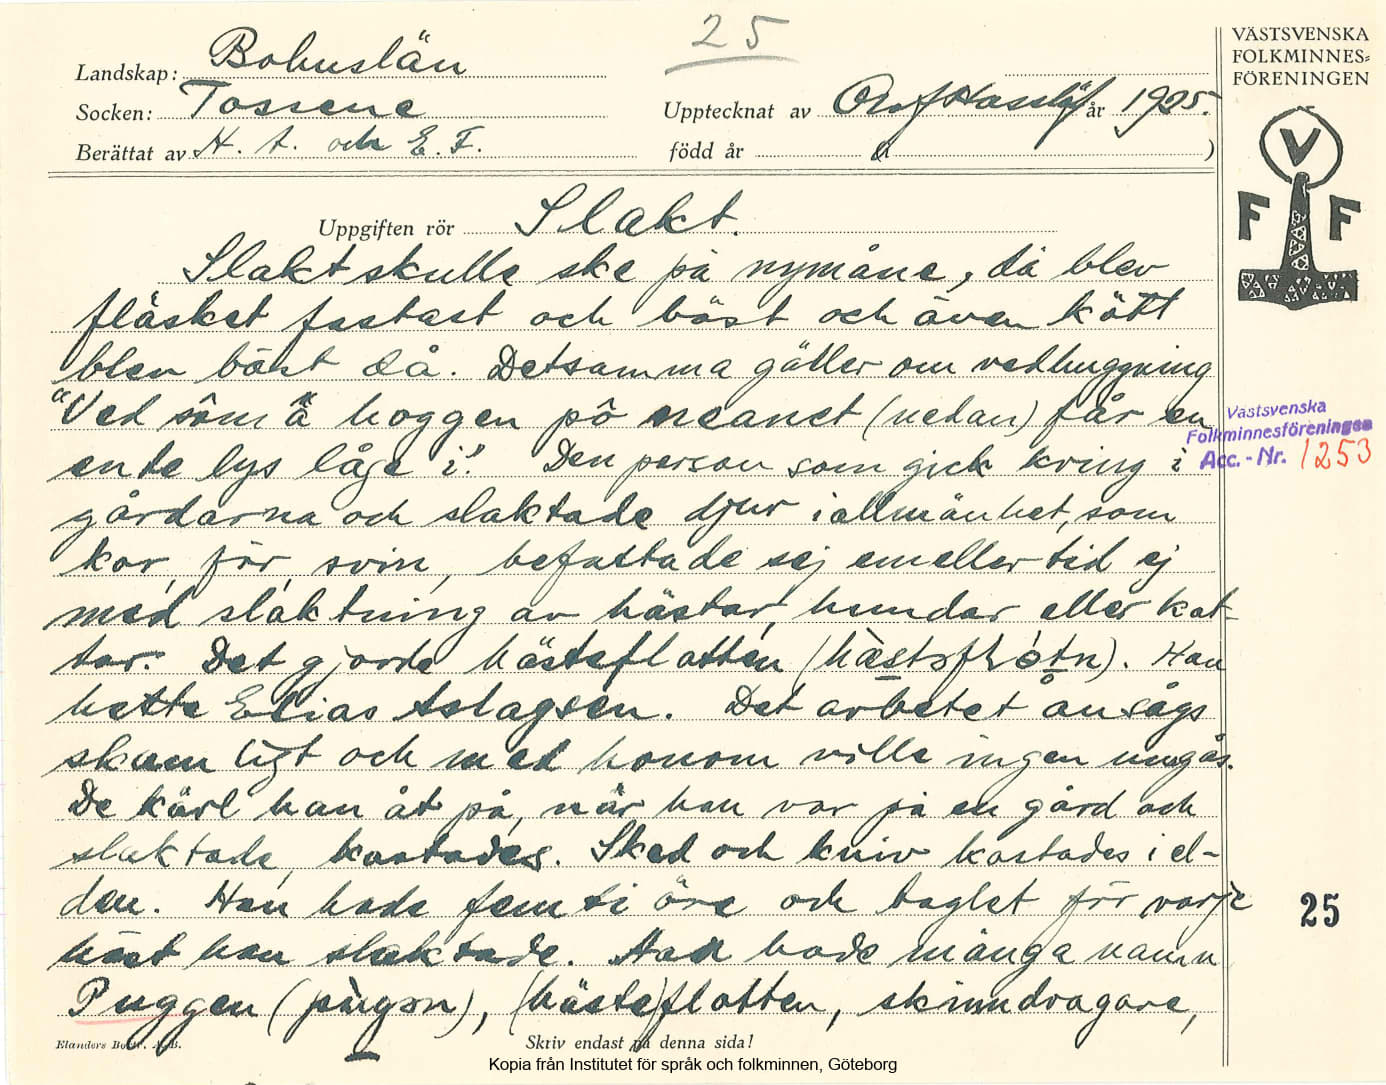 25
VÄSTSVENSKA
FOLKMINNES=
FÖRENINGEN
Landskap: Bohuslän
Socken: Tossene
Upptecknat av Olof Hasslöf år 1925.
Berättat av H. A. och E. F.
född år i )
V
F F
Uppgiften rör Slakt.
Slakt skulle ske på nymåne, då blev
fläsket fastast och bäst och även kött
blev bäst då. Detsamma gäller om vedhuggning
"Ved sôm ä hoggen pô neanet (nedan) får en
ente lys låge i". Den person som gick kring i
gårdarna och slaktade djur i allmänhet, som
kor, får, svin, befattade sej emellertid ej
med slaktning av hästar, hundar eller kat-
tar. Det gjorde hästeflatten (hæ̀stəflɑ́tn). Han
hette Elias Aslagsen. Det arbetet ansågs
skamligt och med honom ville ingen umgås.
De kärl han åt på, när han var på en gård och
slaktade, kastades. Sked och kniv kastades i el-
den. Han hade femti öre och taglet för varje
häst han slaktade. Han hade många namn
Puggen (pùgən), (häste)flatten, skinndragare,
Västsvenska
Folkminnesföreningen
Acc. - Nr. 1253
25
Elanders Boktr. A. B.
Skriv endast på denna sida!
Kopia från Institutet för språk och folkminnen, Göteborg